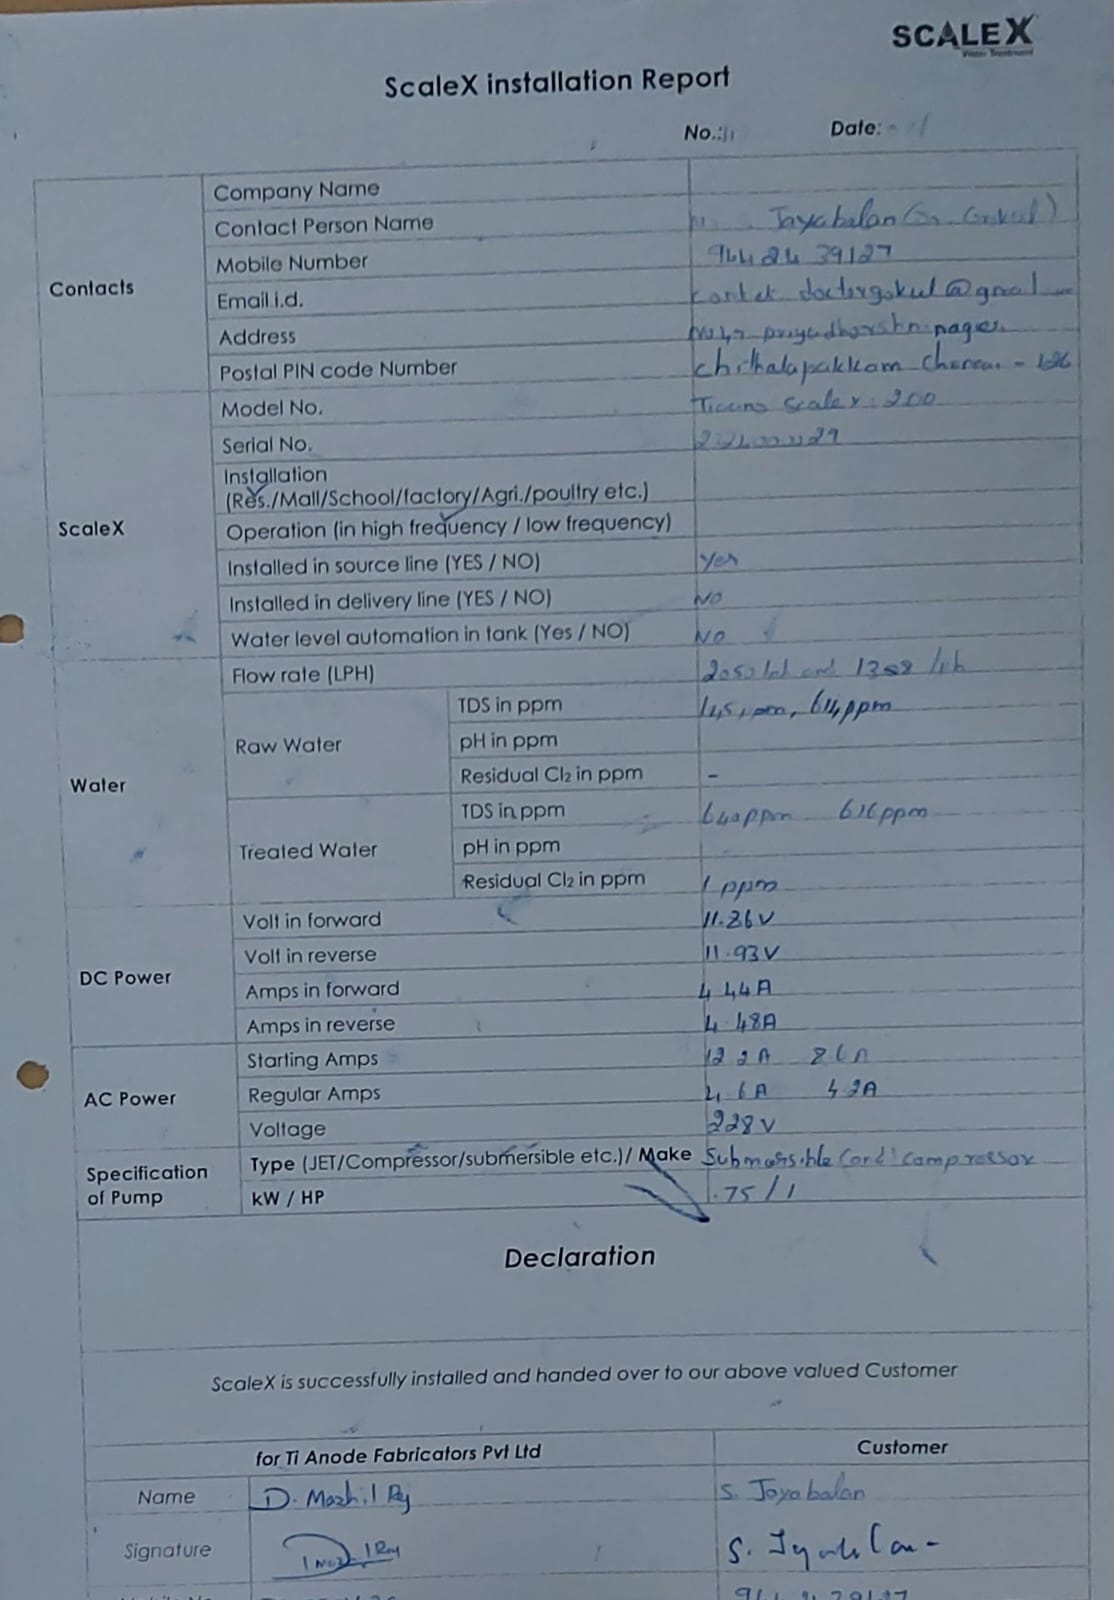 SCALEX
Water Treatment
ScaleX installation Report
No.: Date:
Contacts
Company Name
Contact Person Name Jayabalan
Mobile Number 94424 39127
Email i.d. doctorgokul@gmail
Address nagar
Postal PIN code Number Chithalapakkam
ScaleX
Model No. Scalex 200
Serial No.
Installation
(Res./Mall/School/factory/Agri./poultry etc.)
Operation (in high frequency / low frequency)
Installed in source line (YES / NO) Yes
Installed in delivery line (YES / NO) NO
Water level automation in tank (Yes / NO) NO
Water
Flow rate (LPH) and
Raw Water
TDS in ppm 614ppm
pH in ppm
Residual Cl2 in ppm -
Treated Water
TDS in ppm 640ppm 616ppm
pH in ppm
Residual Cl2 in ppm 1 ppm
DC Power
Volt in forward 11.86V
Volt in reverse 11.93V
Amps in forward 4.44A
Amps in reverse 4.48A
AC Power
Starting Amps
Regular Amps 4.6A 4.2A
Voltage 228V
Specification of Pump
Type (JET/Compressor/submersible etc.)/ Make Submarsible compressor
kW / HP .75/1
Declaration
ScaleX is successfully installed and handed over to our above valued Customer
for Ti Anode Fabricators Pvt Ltd Customer
Name D. Mazhil S. Jayabalan
Signature